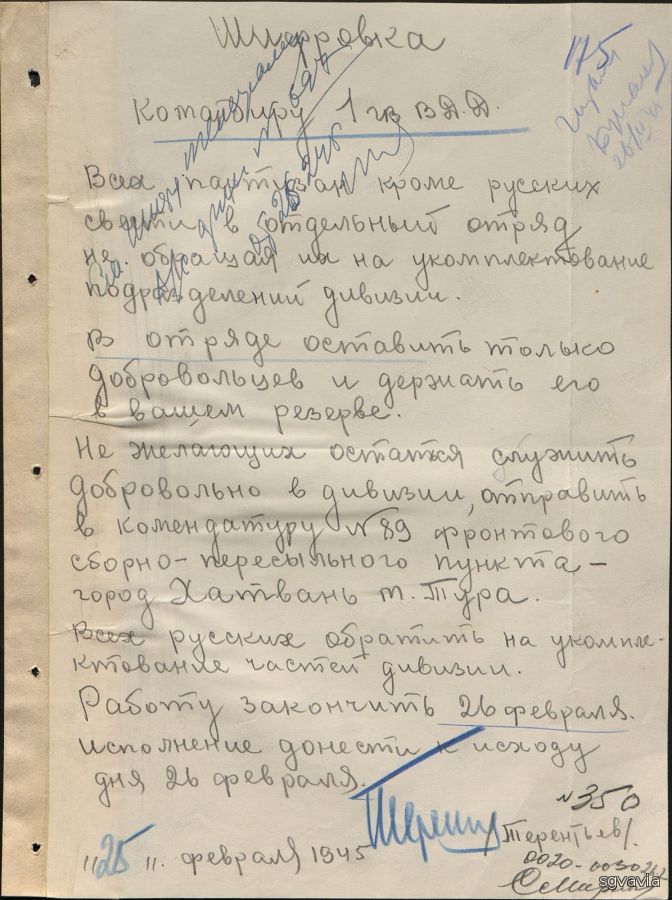 Шифровка
175
Командиру 1 гв ВДД.
Всех партизан кроме русских
свести в отдельный отряд
не обращая их на укомплектование
подразделений дивизии.
В отряде оставить только
добровольцев и держать его
в вашем резерве.
Не желающих остатся служить
добровольно в дивизии, отправить
в комендатуру N 89 фронтового
сборно-пересыльного пункта -
город Хатвань т. Тура.
Всех русских обратить на укомпле-
ктование частей дивизии.
Работу закончить 26 февраля.
исполнение донести к исходу
дня 26 февраля.
N 350
Терентьев/.
"25". февраля 1945
0020-0030
sgvavia